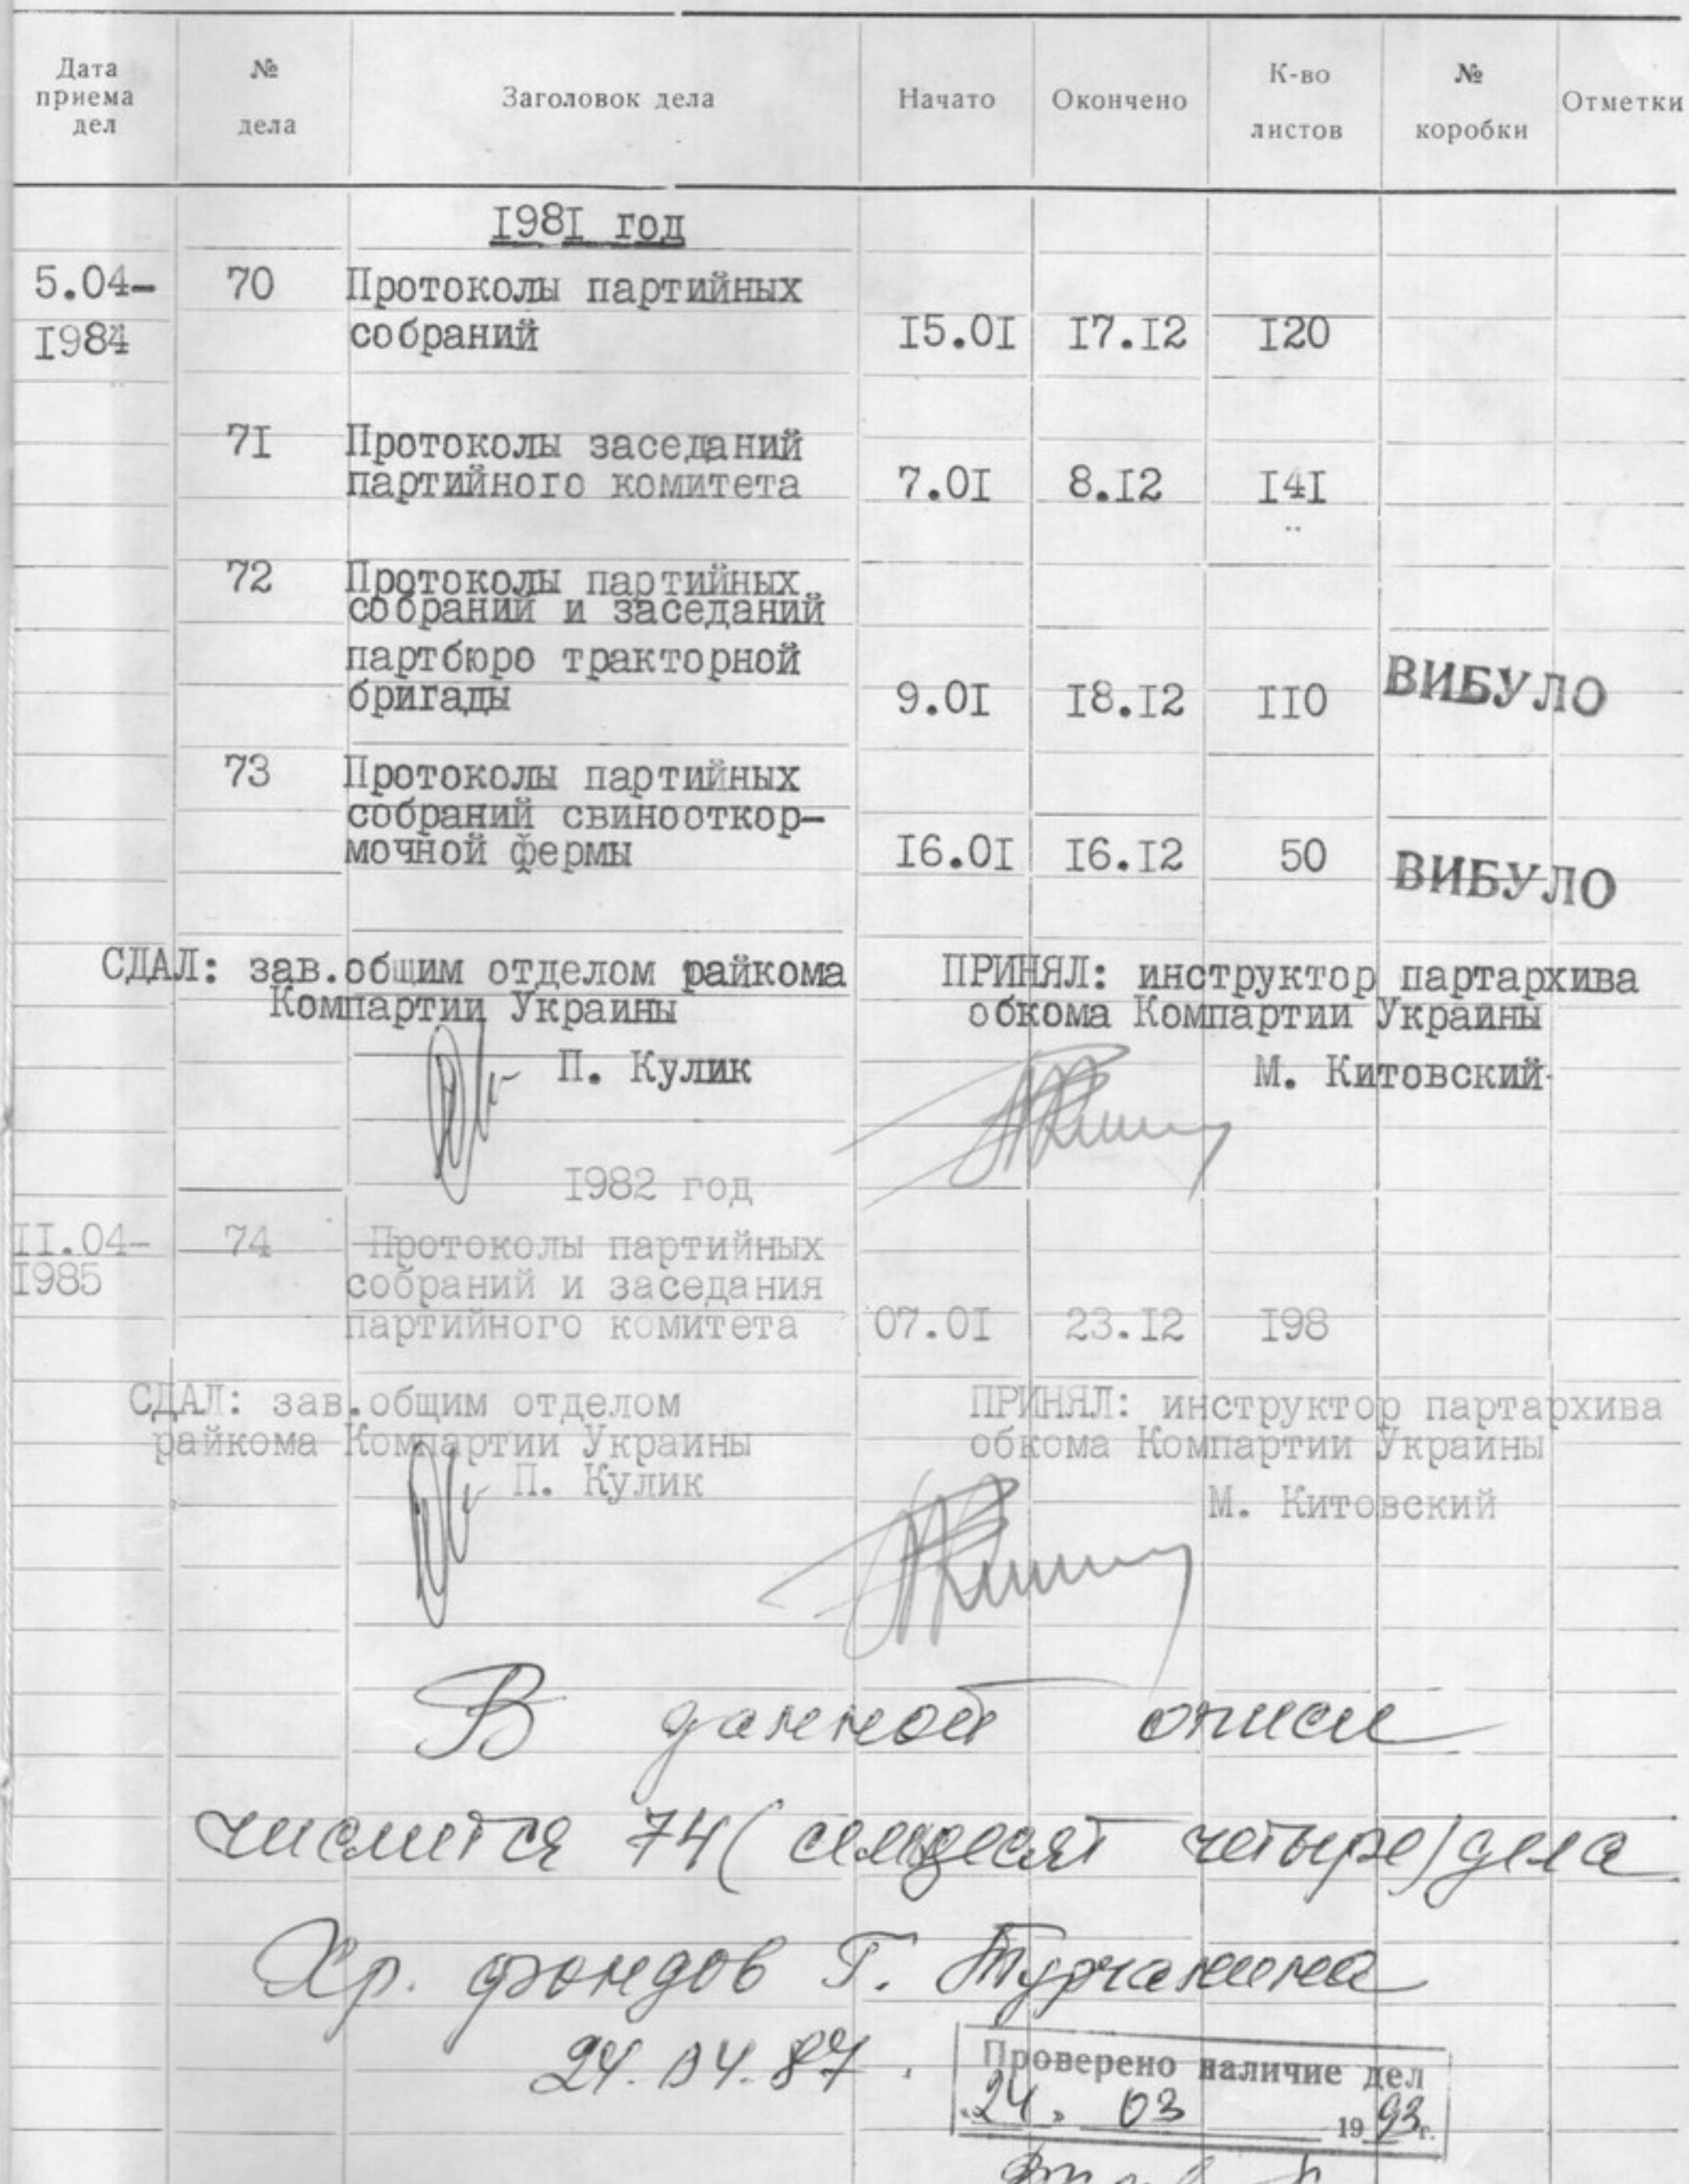 Дата приема дел № дела Заголовок дела Начато Окончено К-во листов № коробки Отметки
1981 год
5.04- 70 Протоколы партийных
1984 собраний 15.01 17.12 120
71 Протоколы заседаний
партийного комитета 7.01 8.12 141
72 Протоколы партийных
собраний и заседаний
партбюро тракторной
бригады 9.01 18.12 110 ВИБУЛО
73 Протоколы партийных
собраний свинооткор-
мочной фермы 16.01 16.12 50 ВИБУЛО
СДАЛ: зав.общим отделом райкома
Компартии Украины
П. Кулик
ПРИНЯЛ: инструктор партархива
обкома Компартии Украины
М. Китовский
1982 год
11.04- 74 Протоколы партийных
1985 собраний и заседания
партийного комитета 07.01 23.12 198
СДАЛ: зав.общим отделом
райкома Компартии Украины
П. Кулик
ПРИНЯЛ: инструктор партархива
обкома Компартии Украины
М. Китовский
В данной описи
числится 74 (семьдесят четыре) дела
Хр. фондов Г. Турчанина
24.04.87.
Проверено наличие дел
"24" 03 1993г.